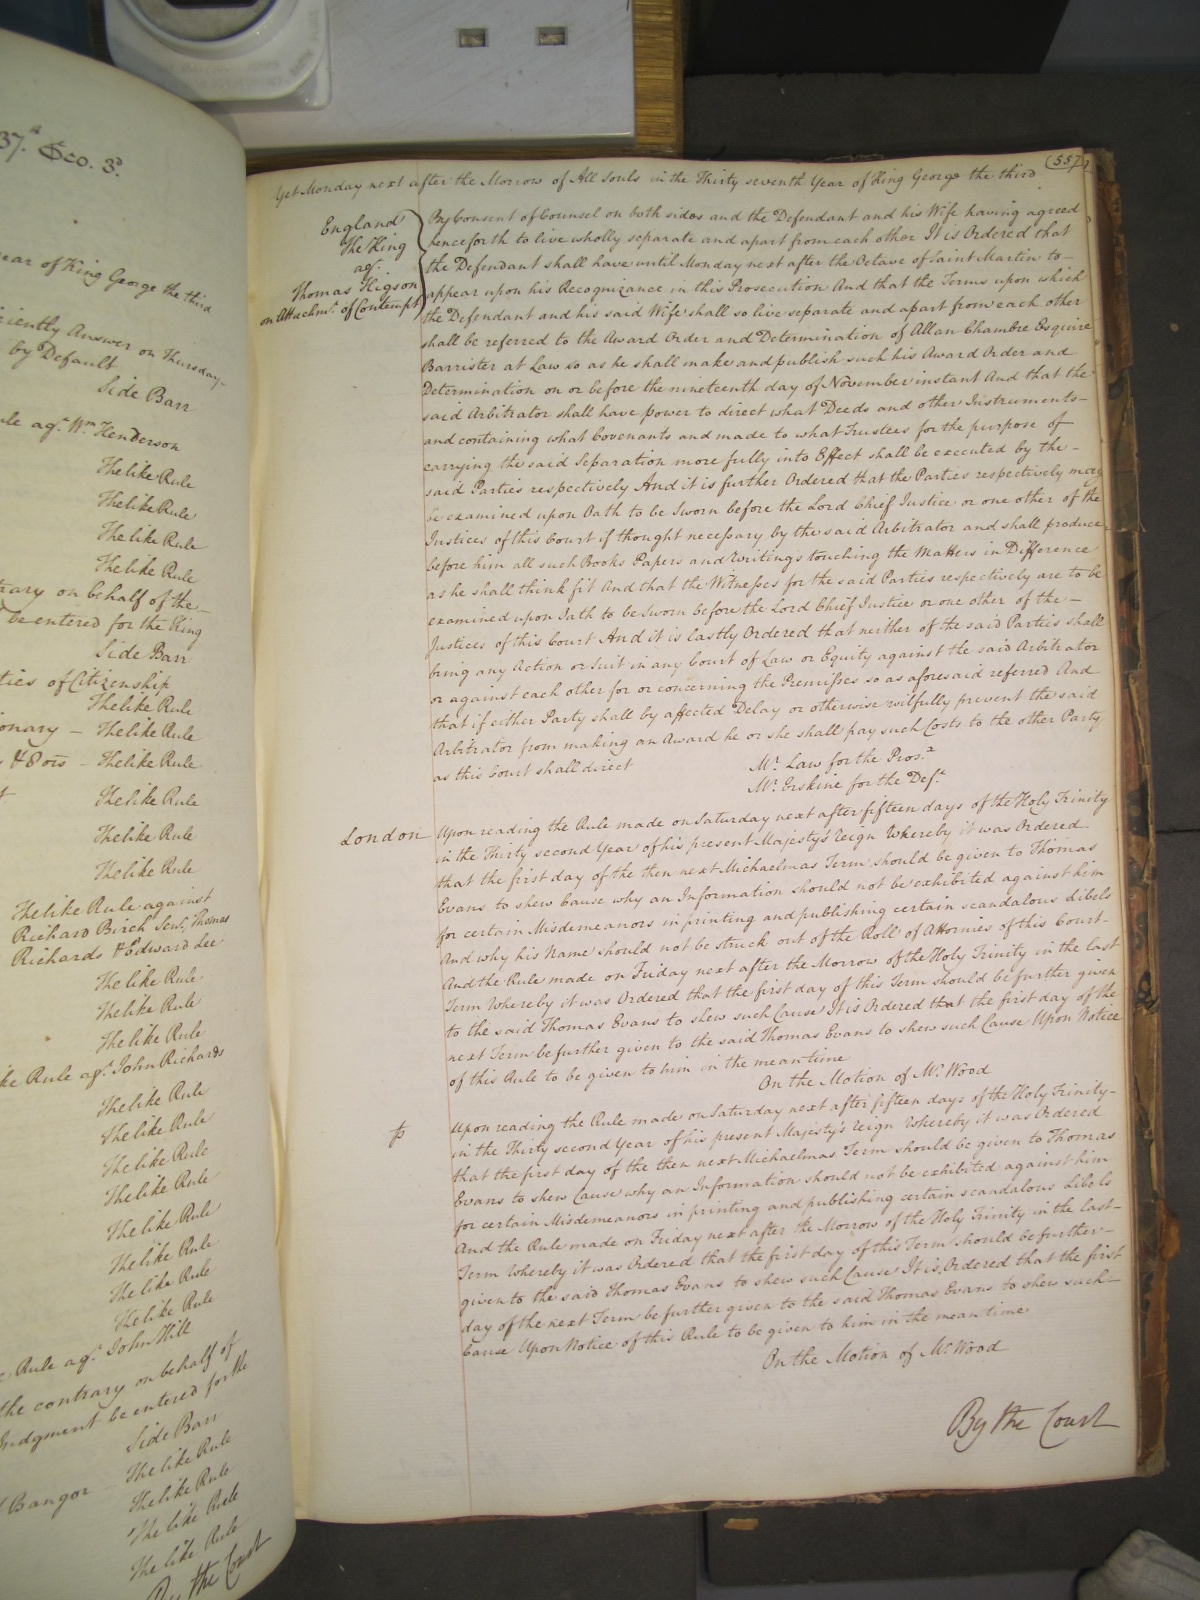 37.th Geo. 3d.
ear of King George the third
ciently Answer on Thursday
by Default
Side Barr
ule agt. Wm. Henderson
The like Rule
The like Rule
The like Rule
The like Rule
trary on behalf of the
be entered for the King
Side Barr
ties of Citizenship
The like Rule
onary – The like Rule
& 8 ors – The like Rule
The like Rule
The like Rule
The like Rule
The like Rule against
Richard Birch Senr., Thomas
Richards & Edward Lee
The like Rule
The like Rule
The like Rule
ke Rule agt. John Richards
The like Rule
The like Rule
The like Rule
The like Rule
The like Rule
The like Rule
The like Rule
The like Rule
Rule agt. John Hill
the contrary on behalf of
Judgment be entered for the
Side Barr
Bangor – The like Rule
The like Rule
The like Rule
The like Rule
By the Court
(557)
Yet Monday next after the Morrow of All Souls in the Thirty seventh Year of King George the third
England
The King
agt.
Thomas Higson
on Attachmt. of Contempt
By Consent of Counsel on both sides and the Defendant and his Wife having agreed
henceforth to live wholly separate and apart from each other It is Ordered that
the Defendant shall have until Monday next after the Octave of Saint Martin to –
appear upon his Recognizance in this Prosecution And that the Terms upon which
the Defendant and his said Wife shall so live separate and apart from each other
shall be referred to the Award Order and Determination of Allan Chambre Esquire
Barrister at Law so as he shall make and publish such his Award Order and
Determination on or before the nineteenth day of November instant And that the
said Arbitrator shall have power to direct what Deeds and other Instruments –
and containing what Covenants and made to what Trustees for the purpose of
carrying the said Separation more fully into Effect shall be executed by the –
said Parties respectively And it is further Ordered that the Parties respectively may
be examined upon Oath to be Sworn before the Lord Chief Justice or one other of the
Justices of this Court if thought necessary by the said Arbitrator and shall produce
before him all such Books Papers and Writings touching the Matters in Difference
as he shall think fit And that the Witnesses for the said Parties respectively are to be
examined upon Oath to be Sworn before the Lord Chief Justice or one other of the –
Justices of this Court And it is lastly Ordered that neither of the said Parties shall
bring any Action or Suit in any Court of Law or Equity against the said Arbitrator
or against each other for or concerning the Premisses so as aforesaid referred And
that if either Party shall by affected Delay or otherwise wilfully prevent the said
Arbitrator from making an Award he or she shall pay such Costs to the other Party
as this Court shall direct
Mr. Law for the Pros.r
Mr. Erskine for the Def.t
London
Upon reading the Rule made on Saturday next after fifteen days of the Holy Trinity
in the Thirty second Year of his present Majesty's reign Whereby it was Ordered
that the first day of the then next Michaelmas Term should be given to Thomas
Evans to shew Cause why an Information should not be exhibited against him
for certain Misdemeanors in printing and publishing certain scandalous Libels
And why his Name should not be struck out of the Roll of Attornies of this Court –
And the Rule made on Friday next after the Morrow of the Holy Trinity in the last
Term Whereby it was Ordered that the first day of this Term should be further given
to the said Thomas Evans to shew such Cause It is Ordered that the first day of the
next Term be further given to the said Thomas Evans to shew such Cause Upon Notice
of this Rule to be given to him in the mean time
On the Motion of Mr. Wood
Upon reading the Rule made on Saturday next after fifteen days of the Holy Trinity –
in the Thirty second Year of his present Majesty's reign Whereby it was Ordered
that the first day of the then next Michaelmas Term should be given to Thomas
Evans to shew Cause why an Information should not be exhibited against him
for certain Misdemeanors in printing and publishing certain scandalous Libels
And the Rule made on Friday next after the Morrow of the Holy Trinity in the last –
Term Whereby it was Ordered that the first day of this Term should be further –
given to the said Thomas Evans to shew such Cause It is Ordered that the first
day of the next Term be further given to the said Thomas Evans to shew such –
Cause Upon Notice of this Rule to be given to him in the mean time
On the Motion of Mr. Wood
By the Court